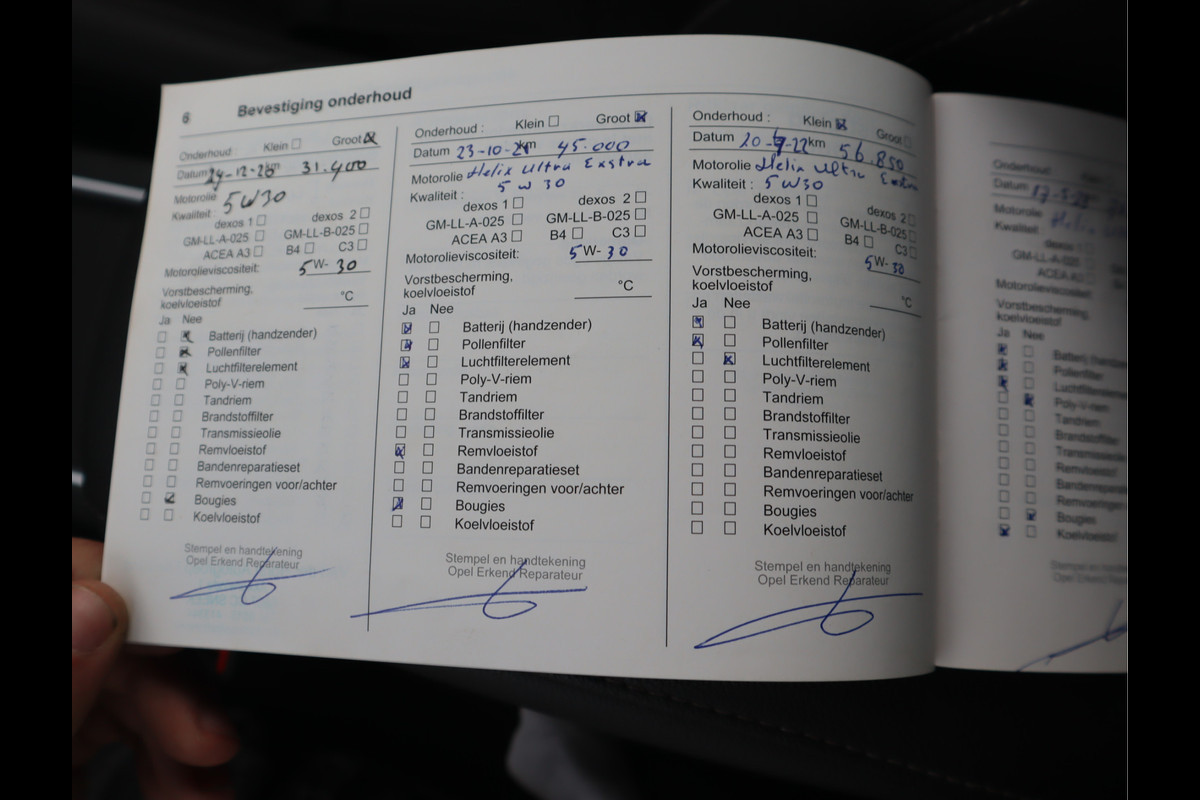 6 Bevestiging onderhoud
Onderhoud Klein Groot
Datum 24-12-20 km 31.400
Motorolie 5W30
Kwaliteit:
dexos 1 dexos 2
GM-LL-A-025 GM-LL-B-025
ACEA A3 B4 C3
Motorolieviscositeit: 5W-30
Vorstbescherming,
koelvloeistof °C
Ja Nee
Batterij (handzender)
Pollenfilter
Luchtfilterelement
Poly-V-riem
Tandriem
Brandstoffilter
Transmissieolie
Remvloeistof
Bandenreparatieset
Remvoeringen voor/achter
Bougies
Koelvloeistof
Stempel en handtekening
Opel Erkend Reparateur
Onderhoud : Klein Groot
Datum 23-10-21 km 45.000
Motorolie Helix Ultra Exstra
Kwaliteit : 5 W 30
dexos 1 dexos 2
GM-LL-A-025 GM-LL-B-025
ACEA A3 B4 C3
Motorolieviscositeit: 5W-30
Vorstbescherming,
koelvloeistof °C
Ja Nee
Batterij (handzender)
Pollenfilter
Luchtfilterelement
Poly-V-riem
Tandriem
Brandstoffilter
Transmissieolie
Remvloeistof
Bandenreparatieset
Remvoeringen voor/achter
Bougies
Koelvloeistof
Stempel en handtekening
Opel Erkend Reparateur
Onderhoud : Klein Groot
Datum 20-7-22 km 56.850
Motorolie Helix Ultra Exstra
Kwaliteit : 5W30
dexos 1 dexos 2
GM-LL-A-025 GM-LL-B-025
ACEA A3 B4 C3
Motorolieviscositeit: 5W-30
Vorstbescherming,
koelvloeistof °C
Ja Nee
Batterij (handzender)
Pollenfilter
Luchtfilterelement
Poly-V-riem
Tandriem
Brandstoffilter
Transmissieolie
Remvloeistof
Bandenreparatieset
Remvoeringen voor/achter
Bougies
Koelvloeistof
Stempel en handtekening
Opel Erkend Reparateur
Onderhoud
Datum
Motorolie
Kwaliteit
dexos 1
GM-LL-A-025
ACEA A3
Vorstbescherming,
koelvloeistof
Ja Nee
Pollenfilter
Poly-V-riem
Tandriem
Brandstoffilter
Remvloeistof
Bougies
Koelvloeistof